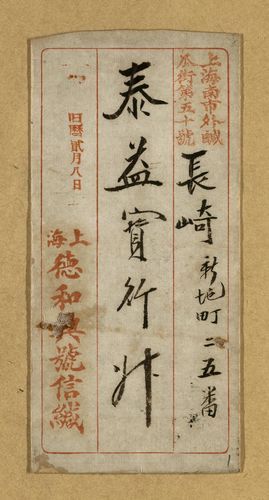 上海南市外鹹
瓜街第五十號
長崎新地町二五番
泰益寳行升
旧曆貳月八日
上海
德和興號信緘